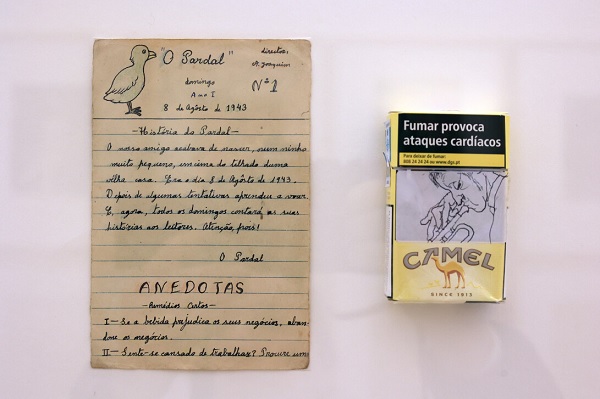 "O Pardal"
director:
A. Joaquim
domingo
Ano I
Nº 1
8 de Agôsto de 1943
—História do Pardal—
O nosso amigo acabava de nascer, num ninho
muito pequeno, em cima do telhado duma
velha casa. Era o dia 8 de Agôsto de 1943.
Depois de algumas tentativas aprendeu a voar.
E, agora, todos os domingos contará as suas
histórias aos leitores. Atenção, pois!
O Pardal
ANEDOTAS
—Remédios Certos—
I—Se a bebida prejudica os seus negócios, aban-
done os negócios.
II—Sente-se cansado de trabalhar? Procure um
Fumar provoca
ataques cardíacos
Para deixar de fumar:
808 24 24 24 ou www.dgs.pt
CAMEL
SINCE 1913